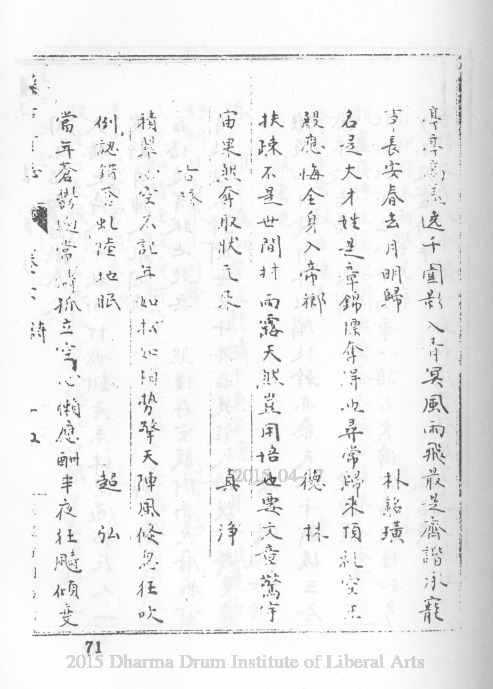 亭亭高 遠千圍影入青冥風雨飛最是齊諧承寵
 長安春去月明歸 林銘璜
名是大才姓是章錦標奪得也尋常歸來頂禮空王
殿應悔全身入帝鄉 德林
扶疎不是世間材雨露天然豈用培也要文章驚宇
宙果然奪取狀元來 真淨
古
積翠心空不記年如 如 勢擎天陣風倐忽狂吹
倒認錯蒼虬陸地眠 超弘
當年蒼鬱迥常 孤立空心懶應酬半夜狂飈傾
卷 詩
71
2015-04-17
2015 Dharma Drum Institute of Liberal Arts